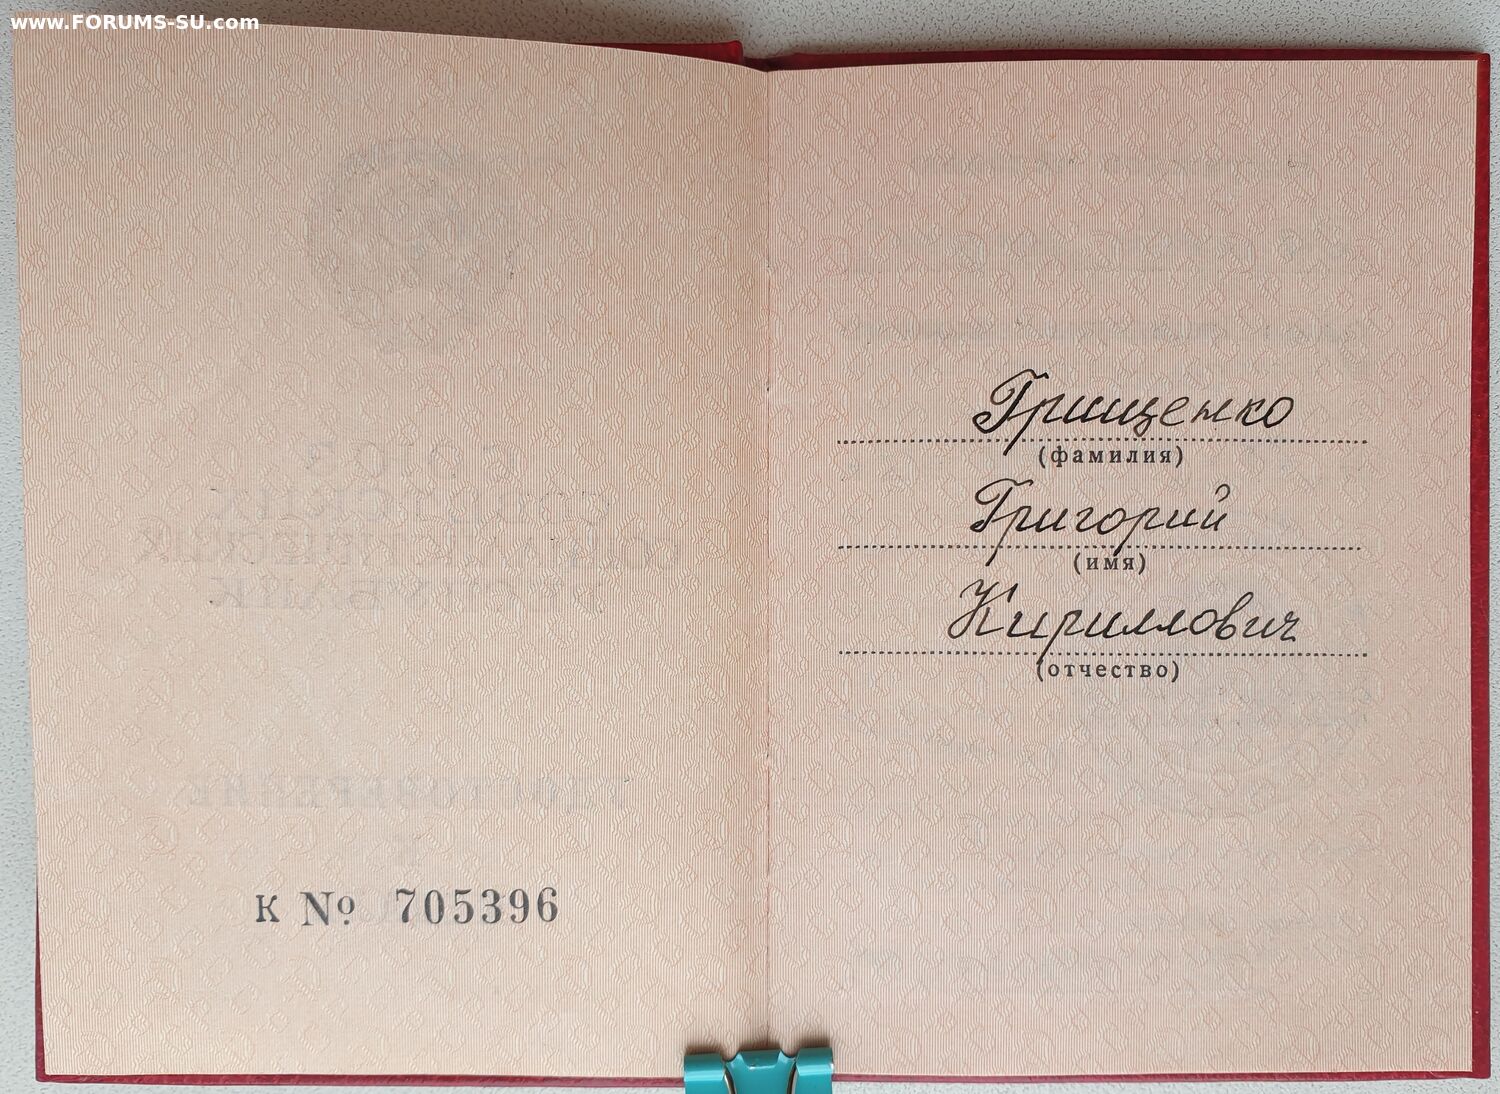 www.FORUMS-SU.com
к № 705396
Грищенко
(фамилия)
Григорий
(имя)
Кириллович
(отчество)